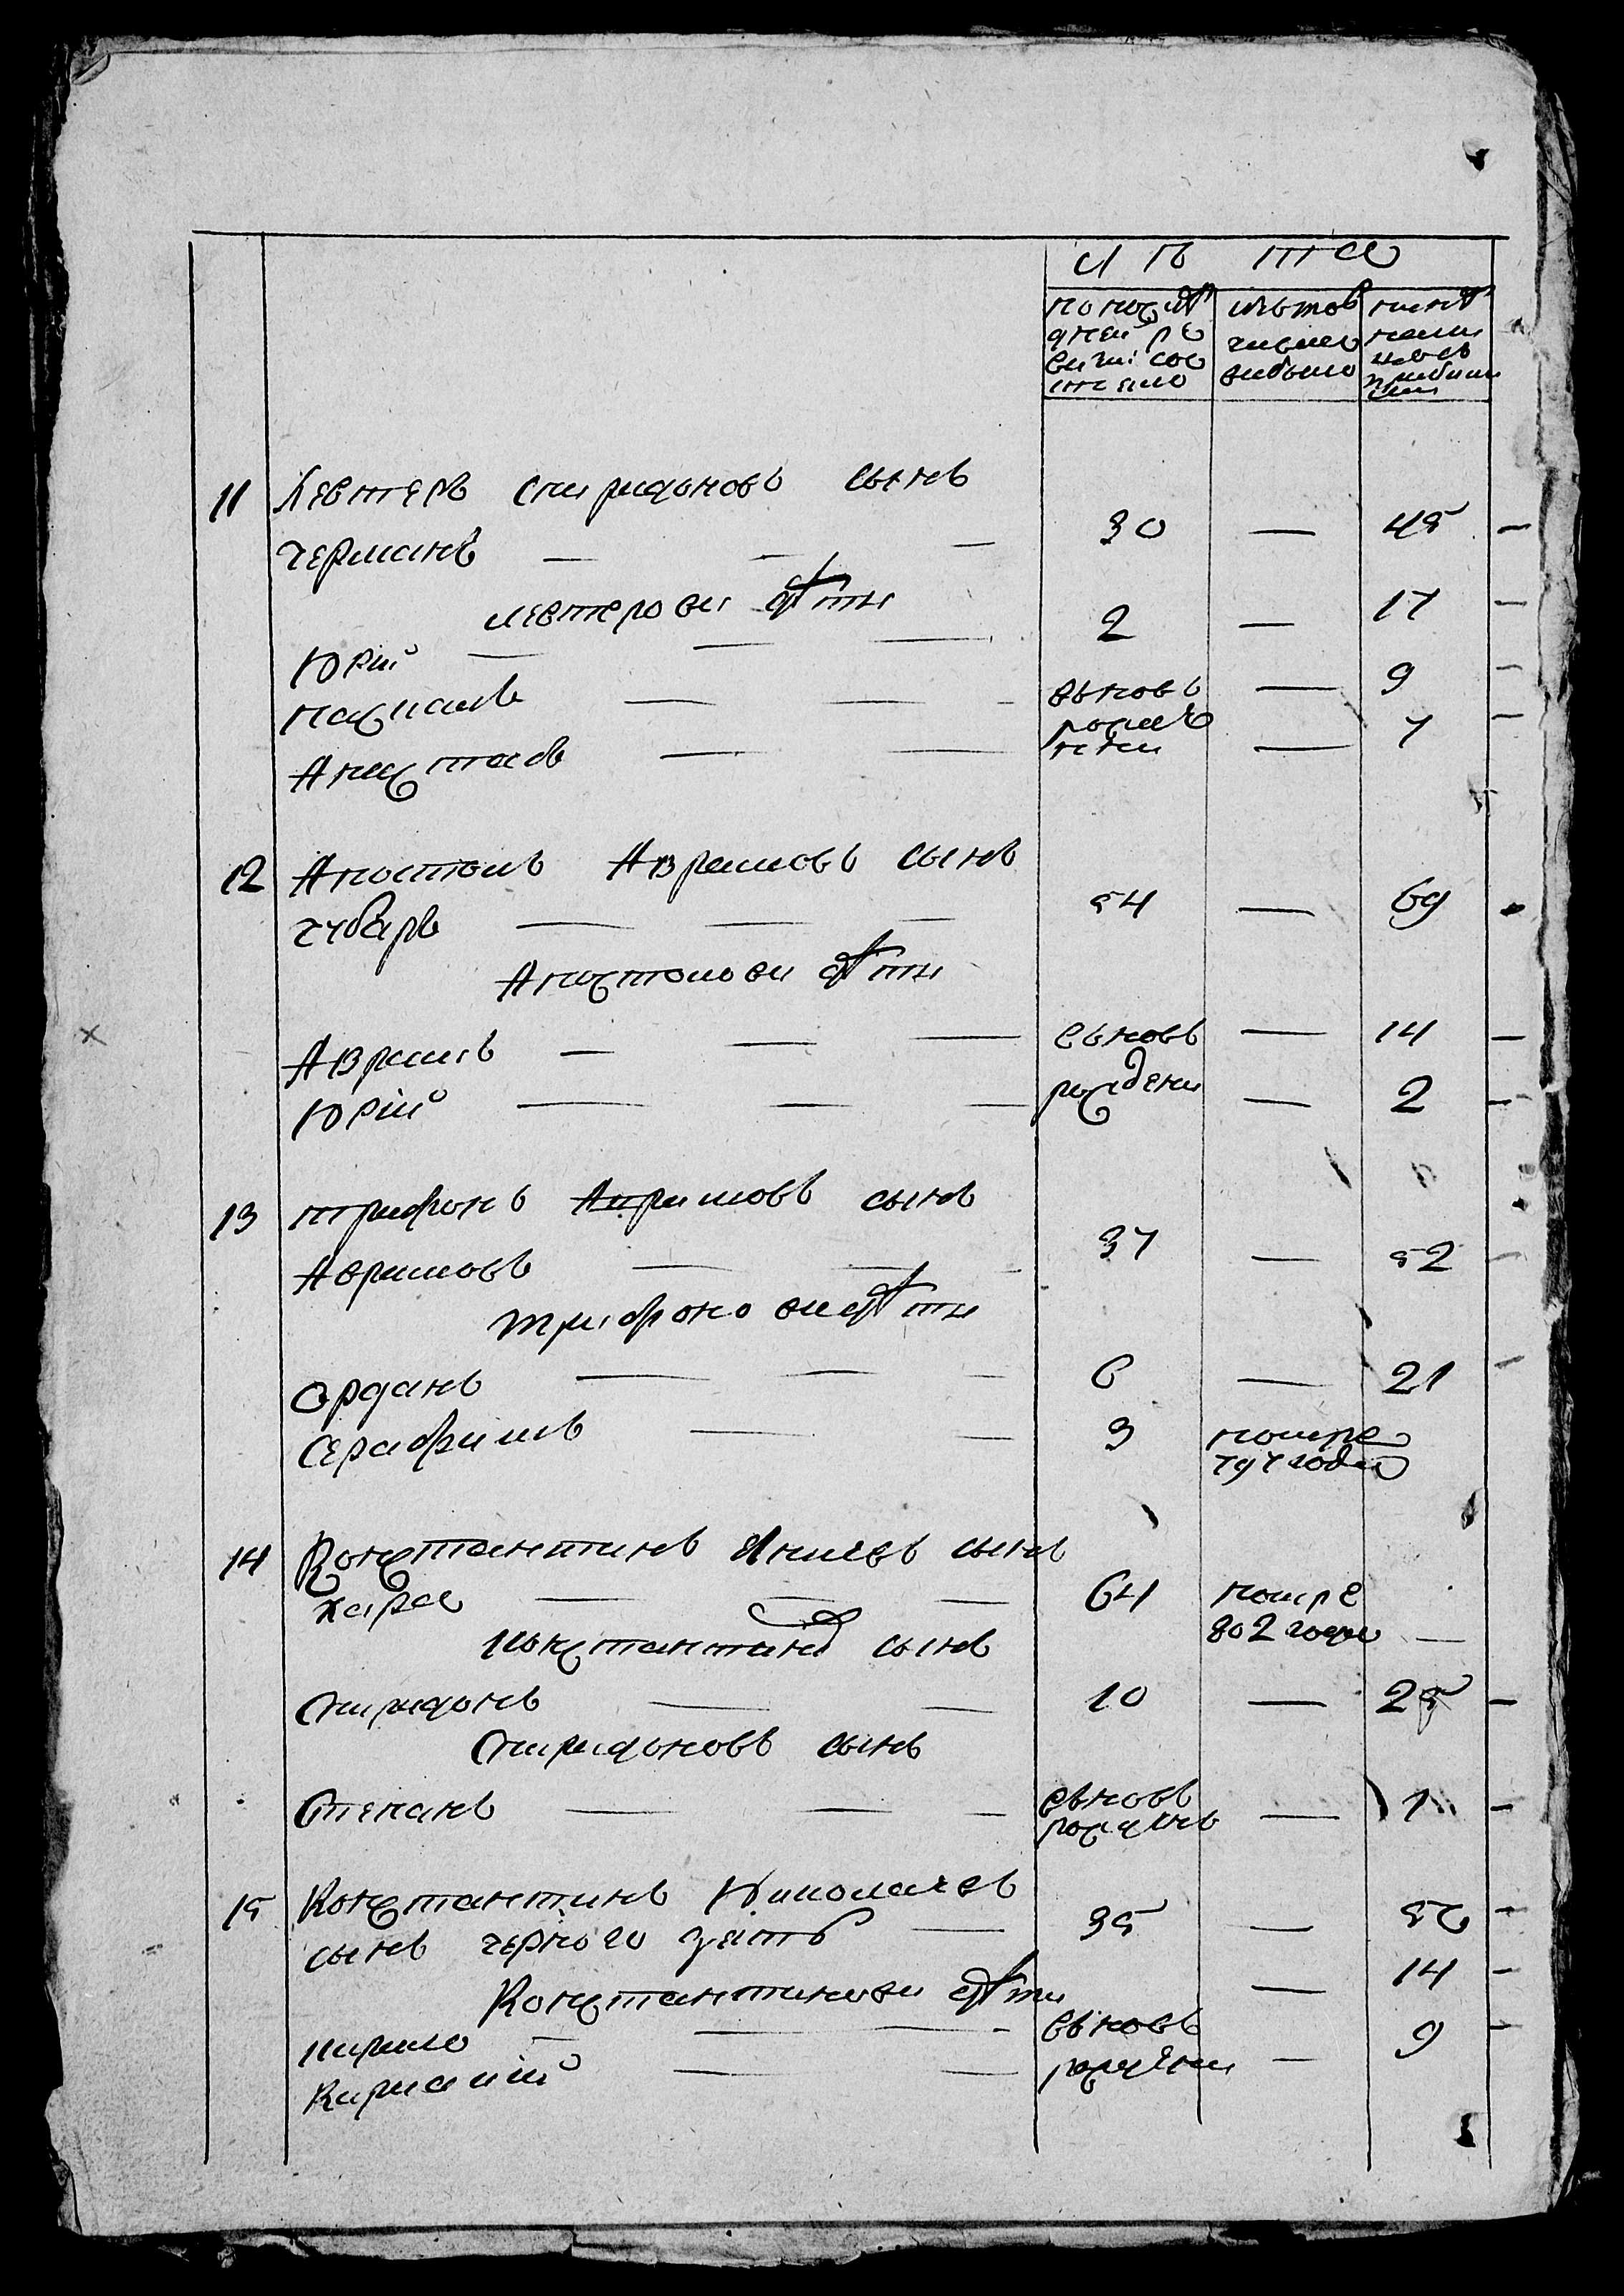 лѣта
по послѣд
ней ре
визии сос
тояло
изътого
числа
выбыло
ныне
нали
11 Левтеръ Спиридоновъ сынъ
Черманъ — — — 30 — 45 —
Левтерови дѣти
Юрий — — — 2 — 17 —
Пасхалъ — — — вьновь — 9 —
рожде
Анастасъ — — нни — 7 —
12 Апостолъ Аврамовъ сынъ
Чубаръ — — — 54 — 69
Апостолови дѣти
Аврамъ — — — вьновь — 14 —
Юрий — — — рождени — 2 —
13 Трифонъ Аврамовъ сынъ
Аврамовъ — — — 37 — 52 —
Трифонови дѣти
Ордань — — — 6 — 21 —
Серафимъ — — 3 помре
797 года
14 Константинъ Яниевъ сынъ
Кара — — — 64 помре
802 года —
Константиновъ сынъ
Спиридонъ — — 10 — 25 —
Спиридоновъ сынъ
Степанъ — — — вьновь — 1 —
рожденъ
15 Константинъ Николаевъ
сынъ Черного зять — 35 — 52 —
Константинови дѣти — 14 —
Кирило — — — вьновь
Кириакий — — рождени — 9 —